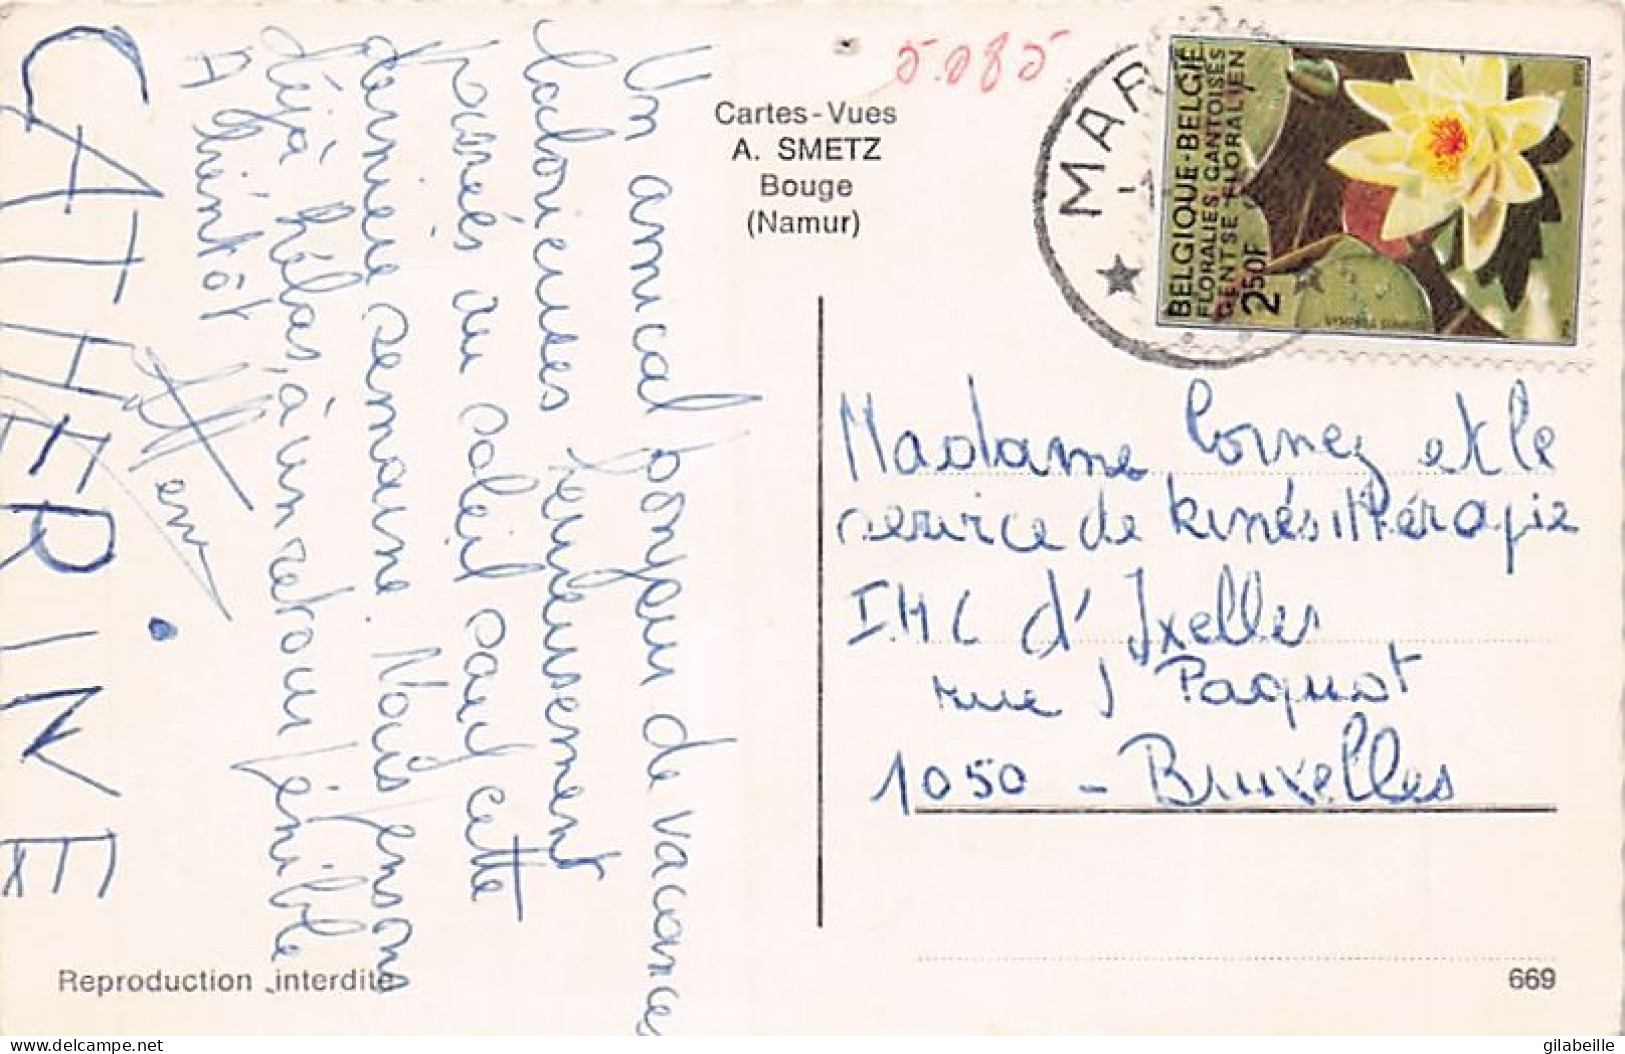 Un amical bonjour de vacances
laborieuses
heureusement
parmés au soleil pour cette
dernière semaine. Nous pensons
déjà hélas, à un retour pénible
A bientôt
CATHERINE
Reproduction interdite
5.085
Cartes-Vues
A. SMETZ
Bouge
(Namur)
MAR
BELGIQUE-BELGIË
FLORALIES GANTOISES
GENTSE FLORALIEN
250F
Madame Cornez et le
service de kinésithérapie
IMC d'Ixelles
rue J Paquot
1050 - Bruxelles
669
delcampe.net
gilabeille